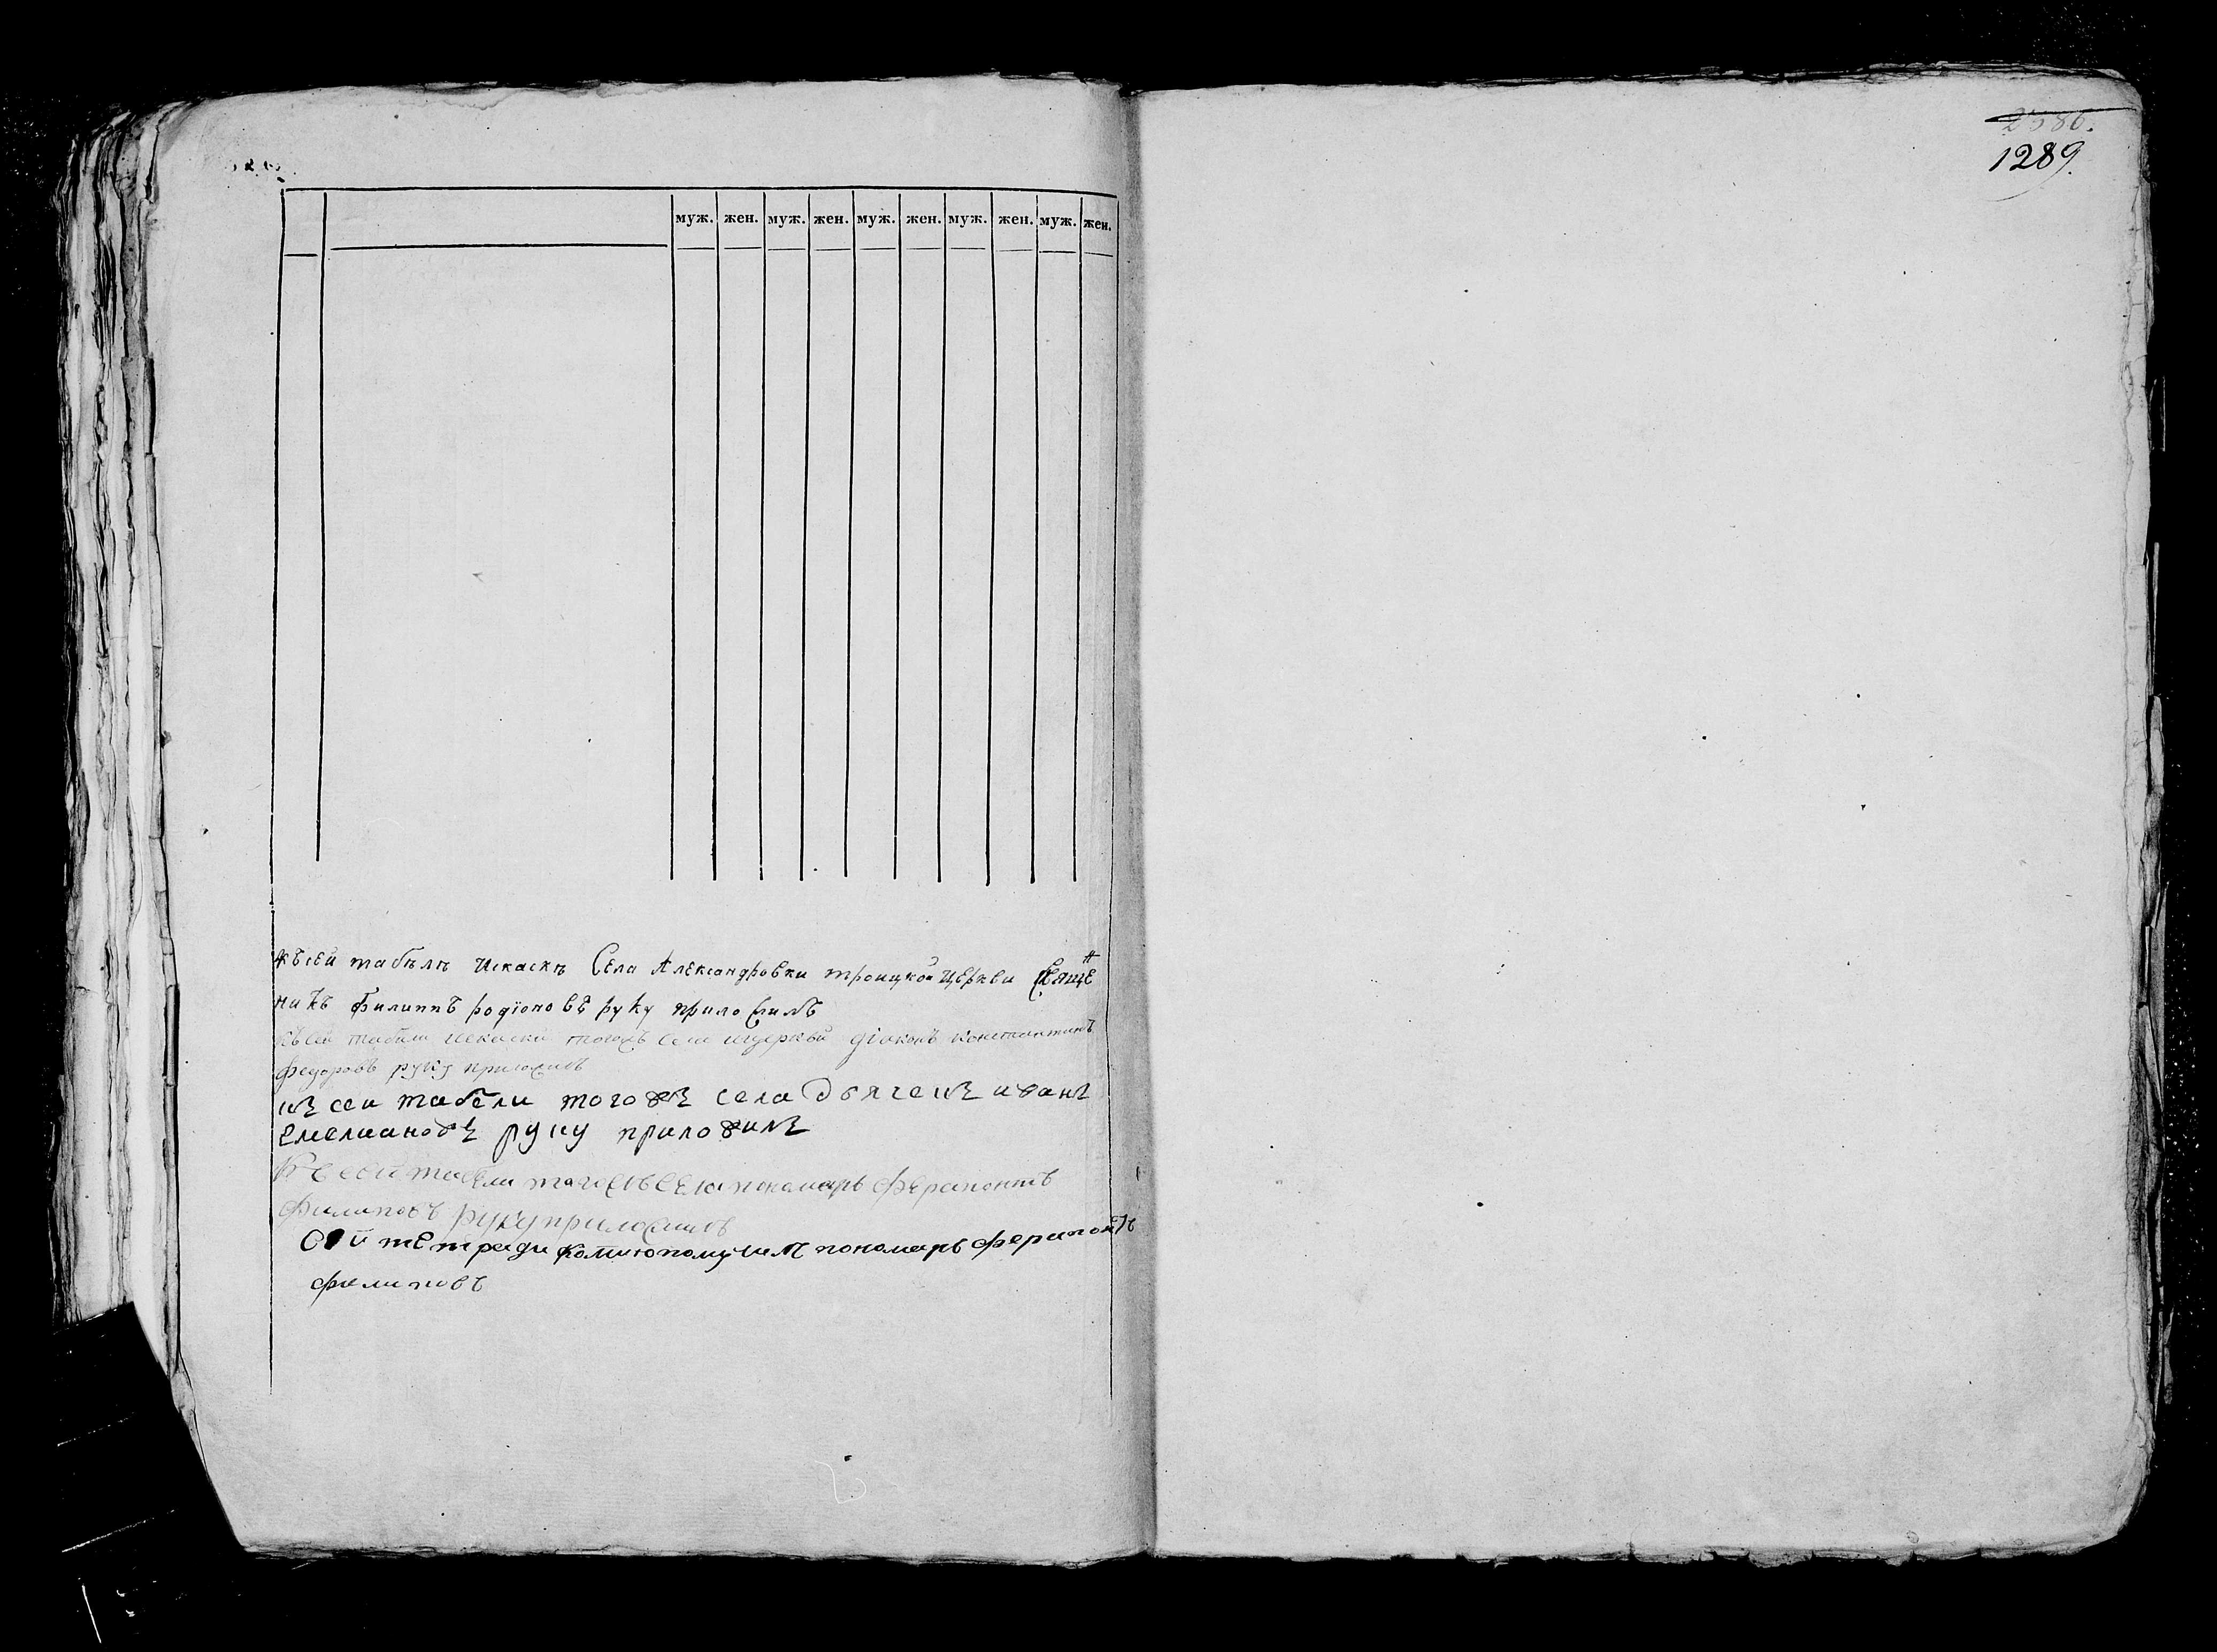 2386.
1289.
муж. жен. муж. жен. муж. жен. муж. жен. муж. жен.
къ сей табѣлѣ искаскѣ Села Александровки троицкой церкви Свяще н
никъ Филиппъ родїоновъ руку приложилъ
къ сей табели искаски тогожъ села ицеркви діаконъ константинъ
федоровъ руку приложилъ
къ сеи табели тогожъ села дьячекъ иванъ
емелиановъ руку приложилъ
къ сей табели тогожъ села пономарь ферапонтъ
филиповъ руку приложилъ
сей тетради копию получилъ пономарь ферапонтъ
филиповъ